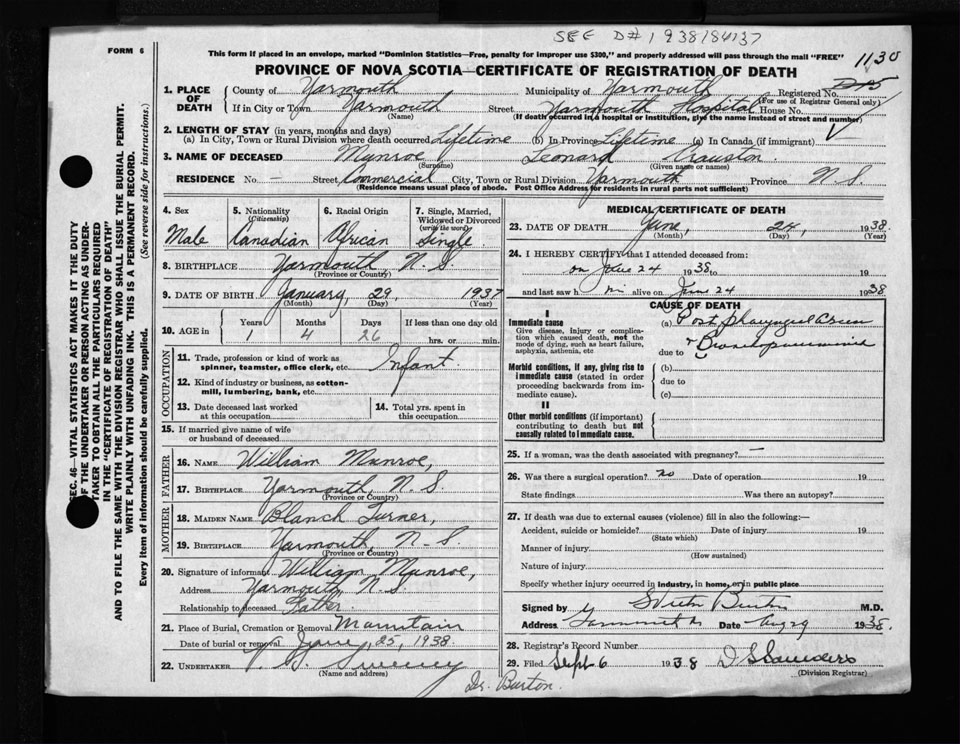 SEE D# 1938/84137
FORM 6
This form if placed in an envelope, marked "Dominion Statistics—Free, penalty for improper use $300," and properly addressed will pass through the mail "FREE"
1130
PROVINCE OF NOVA SCOTIA—CERTIFICATE OF REGISTRATION OF DEATH
1. PLACE OF DEATH County of Yarmouth Municipality of Yarmouth Registered No.
(For use of Registrar General only)
If in City or Town Yarmouth Street Yarmouth Hospital House No.
(Name) (If death occurred in a hospital or institution, give the name instead of street and number)
2. LENGTH OF STAY (in years, months and days)
(a) In City, Town or Rural Division where death occurred Lifetime (b) In Province Lifetime (c) In Canada (if immigrant)
3. NAME OF DECEASED Munroe Leonard
(Surname) (Given name or names)
RESIDENCE No. — Street Commercial City, Town or Rural Division Yarmouth Province N. S.
(Residence means usual place of abode. Post Office Address for residents in rural parts not sufficient)
4. Sex 5. Nationality (Citizenship) 6. Racial Origin 7. Single, Married, Widowed or Divorced (write the word)
Male Canadian African Single
8. BIRTHPLACE Yarmouth N. S.
(Province or Country)
9. DATE OF BIRTH January, 29, 1937
(Month) (Day) (Year)
10. AGE in Years Months Days If less than one day old
1 4 26 hrs. or min.
OCCUPATION
11. Trade, profession or kind of work as spinner, teamster, office clerk, etc. Infant
12. Kind of industry or business, as cotton-mill, lumbering, bank, etc.
13. Date deceased last worked at this occupation
14. Total yrs. spent in this occupation
15. If married give name of wife or husband of deceased
FATHER
16. NAME William Munroe,
17. BIRTHPLACE Yarmouth, N. S.
(Province or Country)
MOTHER
18. MAIDEN NAME Blanch Turner,
19. BIRTHPLACE Yarmouth, N-S
(Province or Country)
20. Signature of informant William Munroe,
Address Yarmouth, N. S.
Relationship to deceased Father.
21. Place of Burial, Cremation or Removal Mountain
Date of burial or removal June, 25, 1938
22. UNDERTAKER Sweeney
(Name and address)
Dr. Burton.
MEDICAL CERTIFICATE OF DEATH
23. DATE OF DEATH June, 24, 1938
(Month) (Day) (Year)
24. I HEREBY CERTIFY that I attended deceased from:
on June 24 1938 to 19
and last saw h im alive on June 24 1938
CAUSE OF DEATH
I
Immediate cause (a) Post pharyngeal
Give disease, injury or complication which caused death, not the mode of dying, such as heart failure, asphyxia, asthenia, etc
due to Bronchopneumonia
Morbid conditions, if any, giving rise to immediate cause (stated in order proceeding backwards from immediate cause).
(b)
due to
(c)
II
Other morbid conditions (if important) contributing to death but not causally related to immediate cause.
25. If a woman, was the death associated with pregnancy? —
26. Was there a surgical operation? no Date of operation 19
State findings Was there an autopsy?
27. If death was due to external causes (violence) fill in also the following:—
Accident, suicide or homicide? Date of injury 19
(State which)
Manner of injury
(How sustained)
Nature of injury
Specify whether injury occurred in industry, in home, or in public place
Signed by Burton M.D.
Address Yarmouth Date Aug 29 1938.
28. Registrar's Record Number
29. Filed Sept 6 1938 D S Saunders
(Division Registrar)
SEC. 46—VITAL STATISTICS ACT MAKES IT THE DUTY
OF THE UNDERTAKER OR PERSON ACTING AS UNDERTAKER TO OBTAIN ALL THE PARTICULARS REQUIRED
IN THE "CERTIFICATE OF REGISTRATION OF DEATH"
AND TO FILE THE SAME WITH THE DIVISION REGISTRAR WHO SHALL ISSUE THE BURIAL PERMIT.
WRITE PLAINLY WITH UNFADING INK. THIS IS A PERMANENT RECORD.
Every item of information should be carefully supplied. (See reverse side for instructions.)